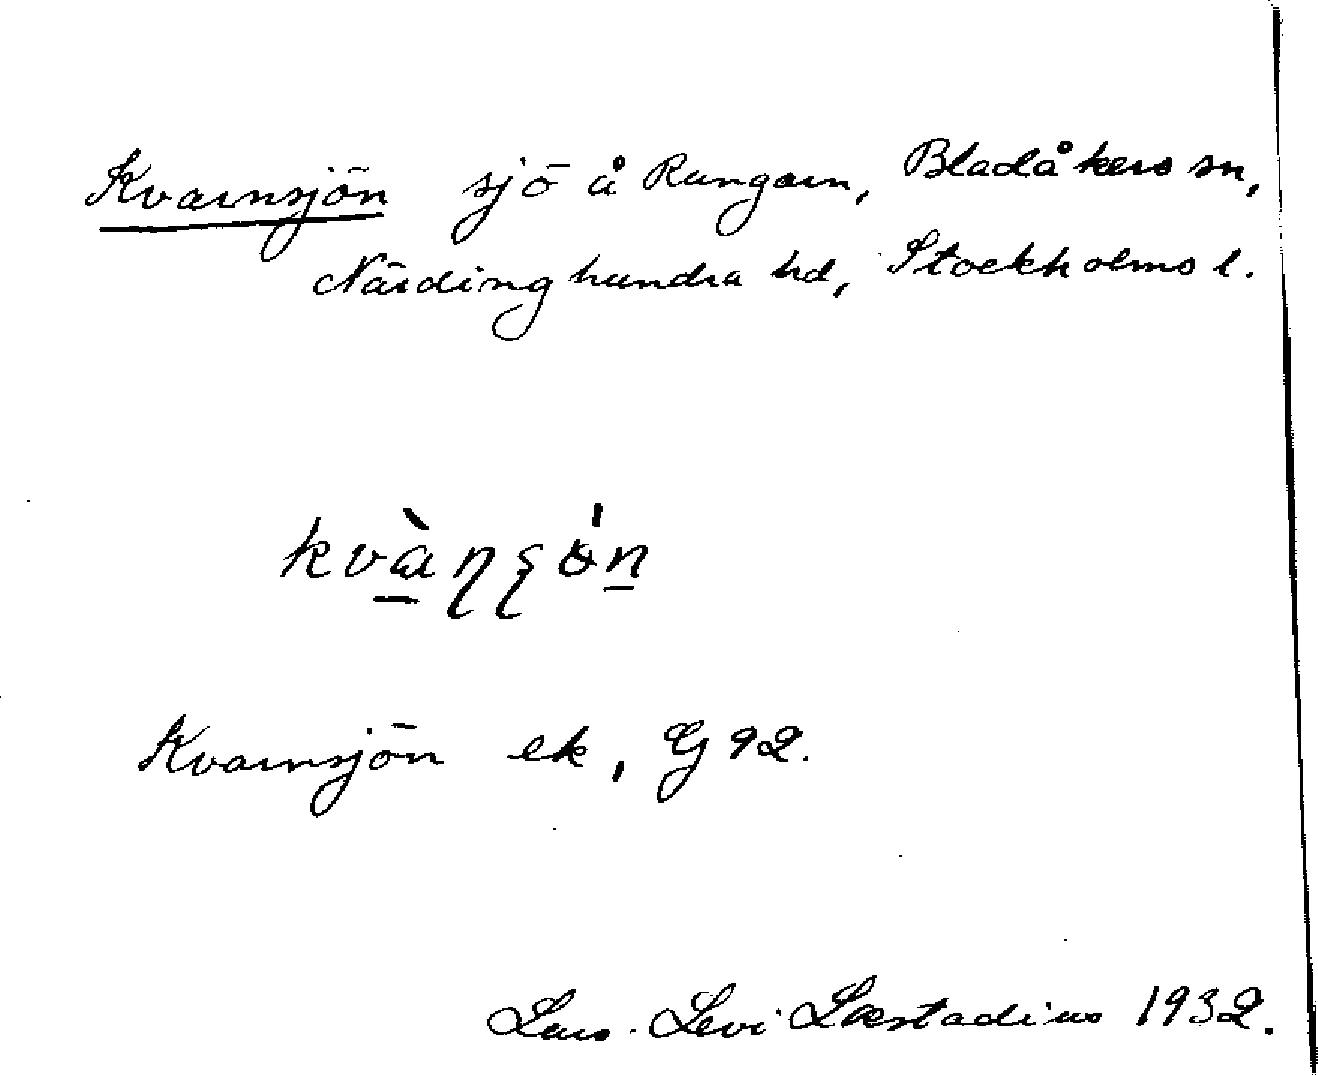 Kvarnsjön sjö å Rungarn, Bladåkers sn,
Närdinghundra hd, Stockholms l.
kvàṇșǿn
Kvarnsjön ek, G 92.
Lars Levi Læstadius 1932.